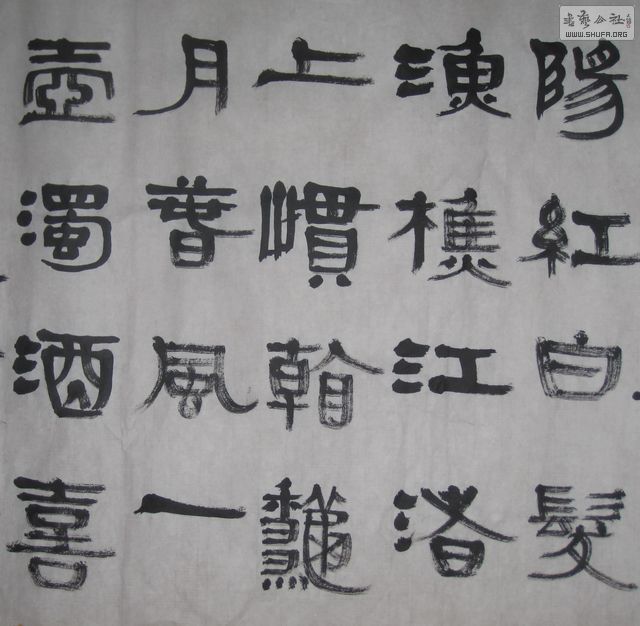 陽紅白髮
漁樵江洛
上慣看龝
月春風一
壺濁酒喜
書藝公社
WWW.SHUFA.ORG